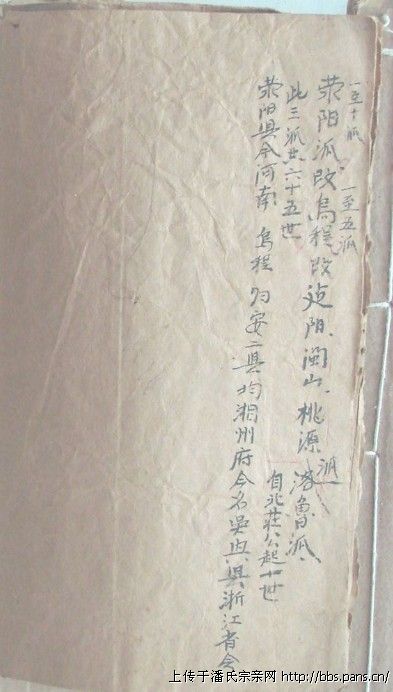 一至十派
一至五派
荥阳派改乌程改延阳、闽山、桃源派 潜鲁派
自北莊公起十世
此三派共六十五世
荥阳县今河南 乌程 归安二县均湖州府今名吳兴县浙江省会
上传于潘氏宗亲网 http://bbs.pans.cn/